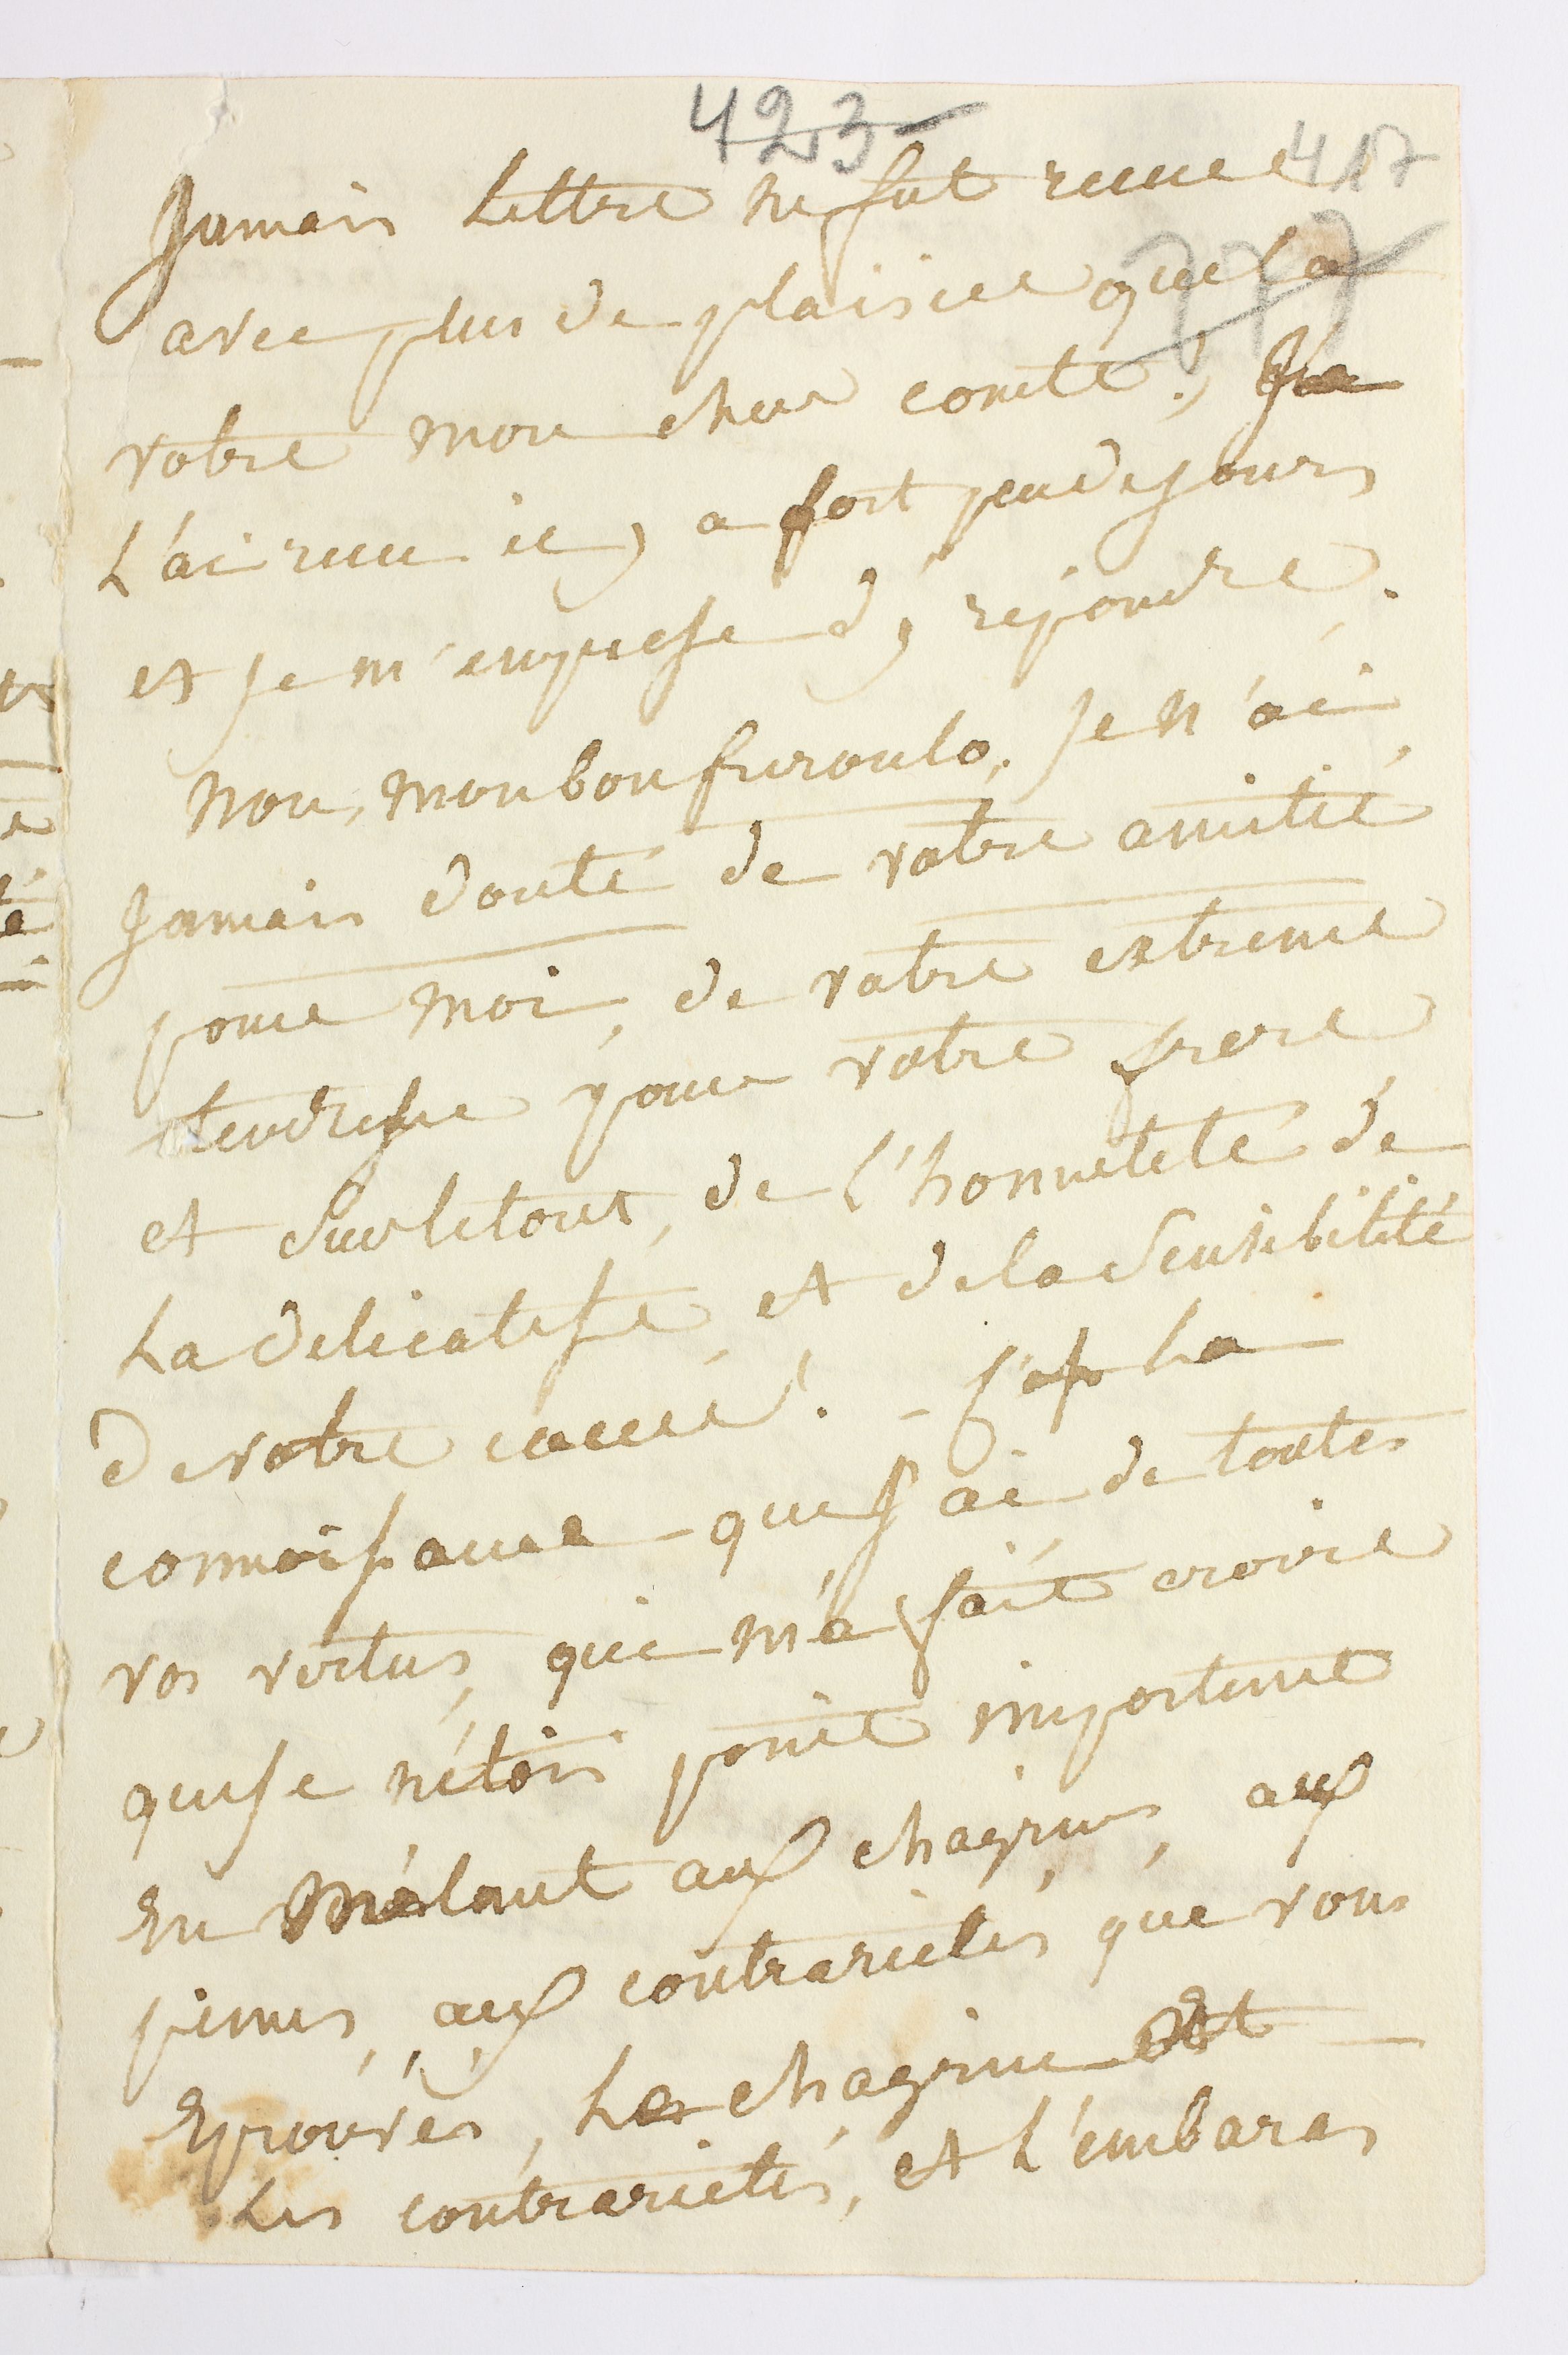 423
417
777
Jamais Lettre ne fut recue
avec plus de plaisir que la
votre mon cher comte, Je
L'ai recue il y a fort peu de jours
et je m'empresse d'y repondre.
Non, mon bon furoulo, Je n'ai
Jamais douté de votre amitié
pour moi, de votre extreme
tendresse pour votre frere
et surletout, de l'honneteté de
La delicatesse, et de la sensibilité
de votre coeur! - c'est La
connoissance que J'ai de toutes
vos vertus, qui m'a fait croire
que je n'étois point importune
En mélant aux chagrins, aux
peines, aux contrarietés que vous
Eprouvés, Le chagrin Et
Les contrarietés, et L'embaras